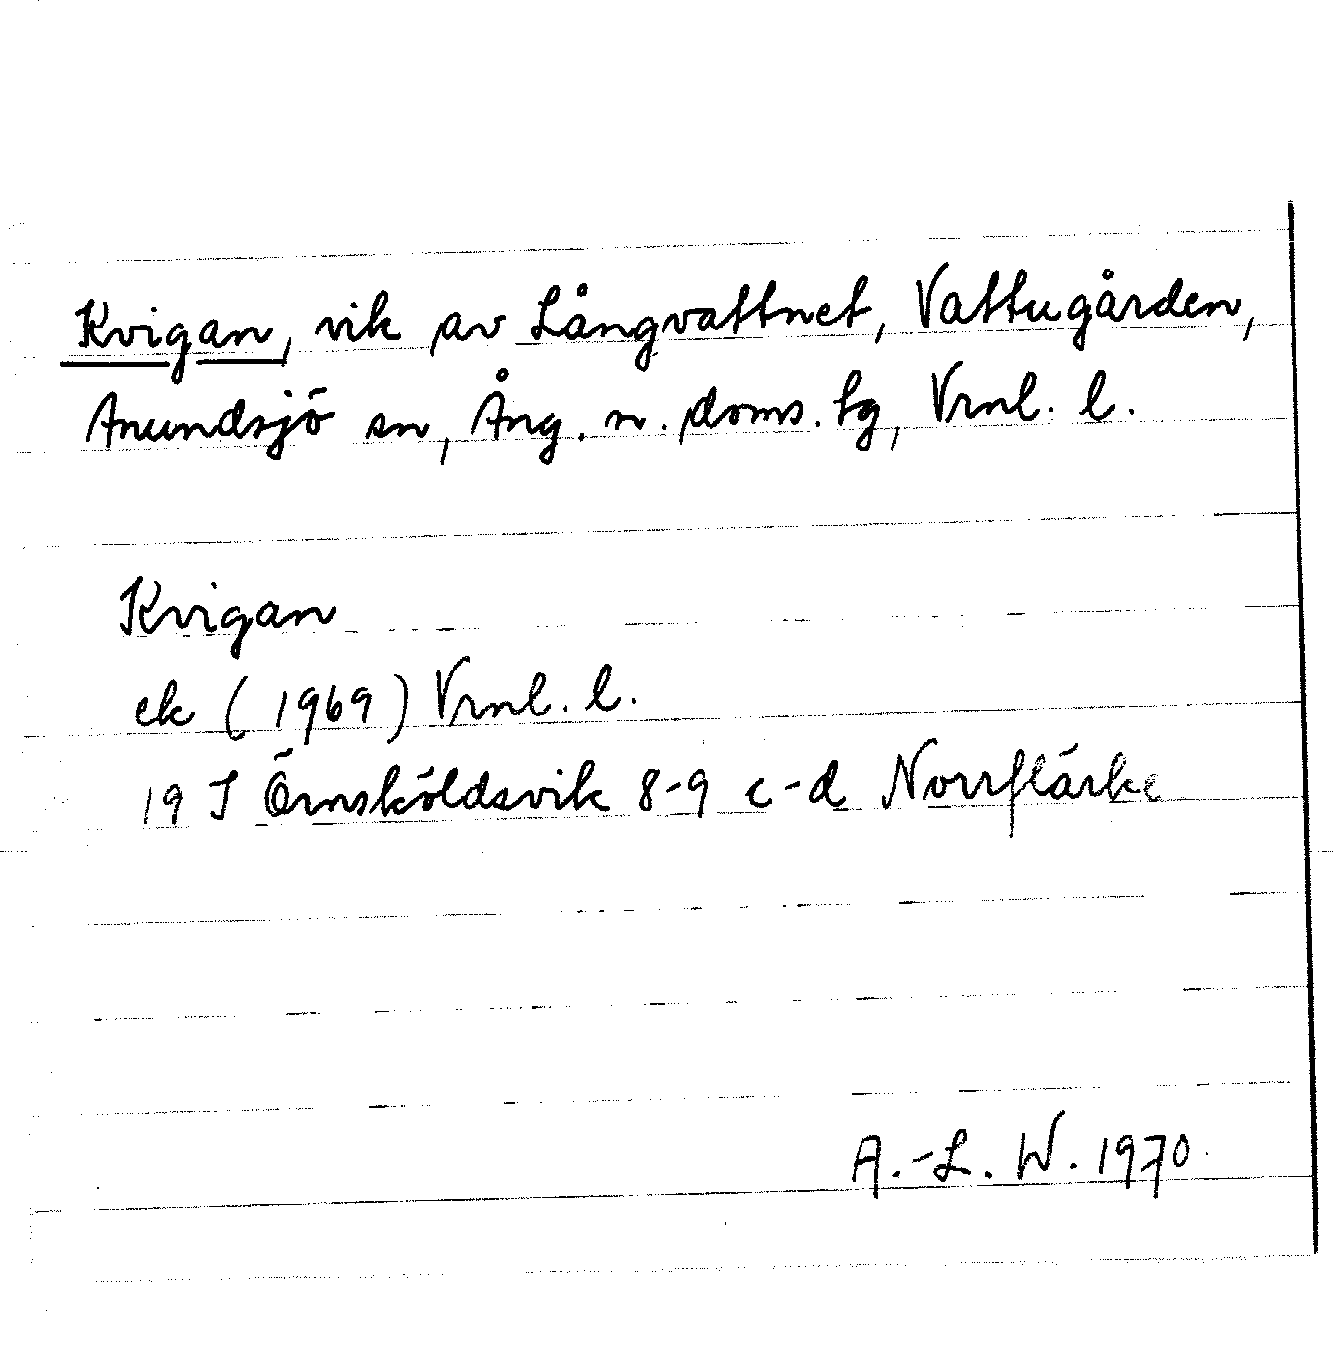 Kvigan, vik av Långvattnet, Vattugården,
Anundsjö sn, Ång. n. doms. tg, Vrnl. l.
Kvigan
ek (1969) Vrnl. l.
19 J Örnsköldsvik 8-9 c-d Norrflärke
A.-L. W. 1970.